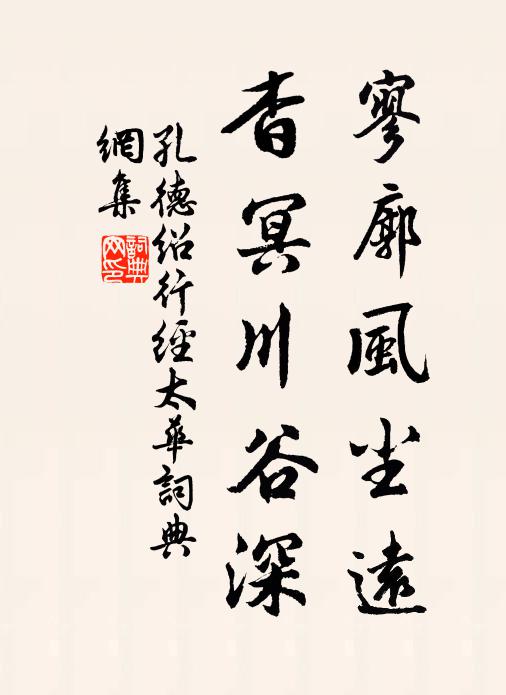 寥廓風尘遠
杳冥川谷深
孔德紹行經太華詞典
網集
詞典
网印